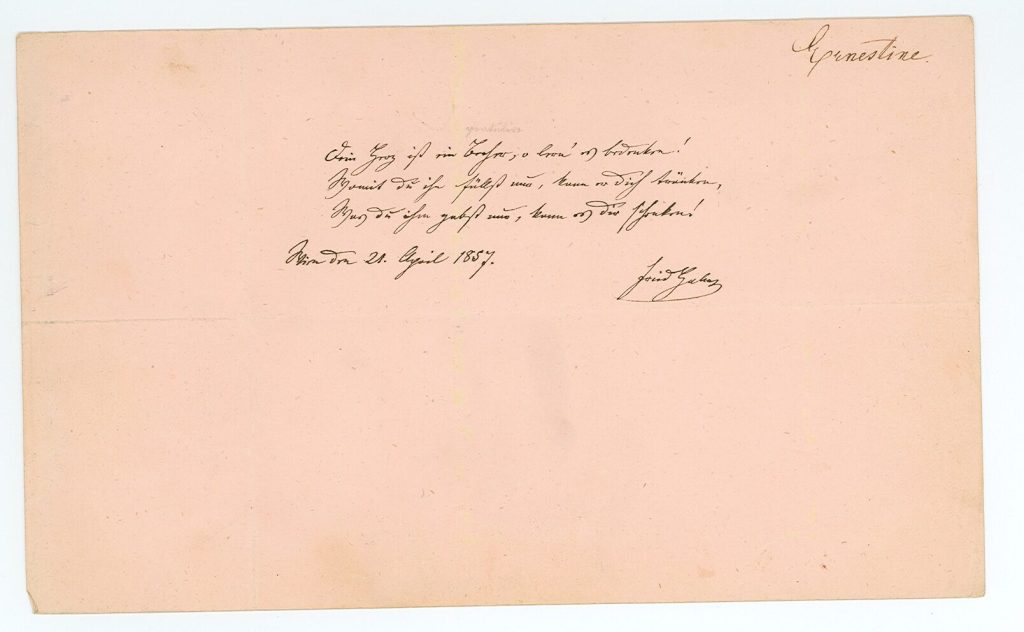 Ernestine.
Dein Herz ist ein Becher, o lern' es bedenken!
Womit du ihn füllst nur, kann er dich tränken,
Was du ihm gabst nur, kann er dir schenken!
Wien den 21. April 1857.